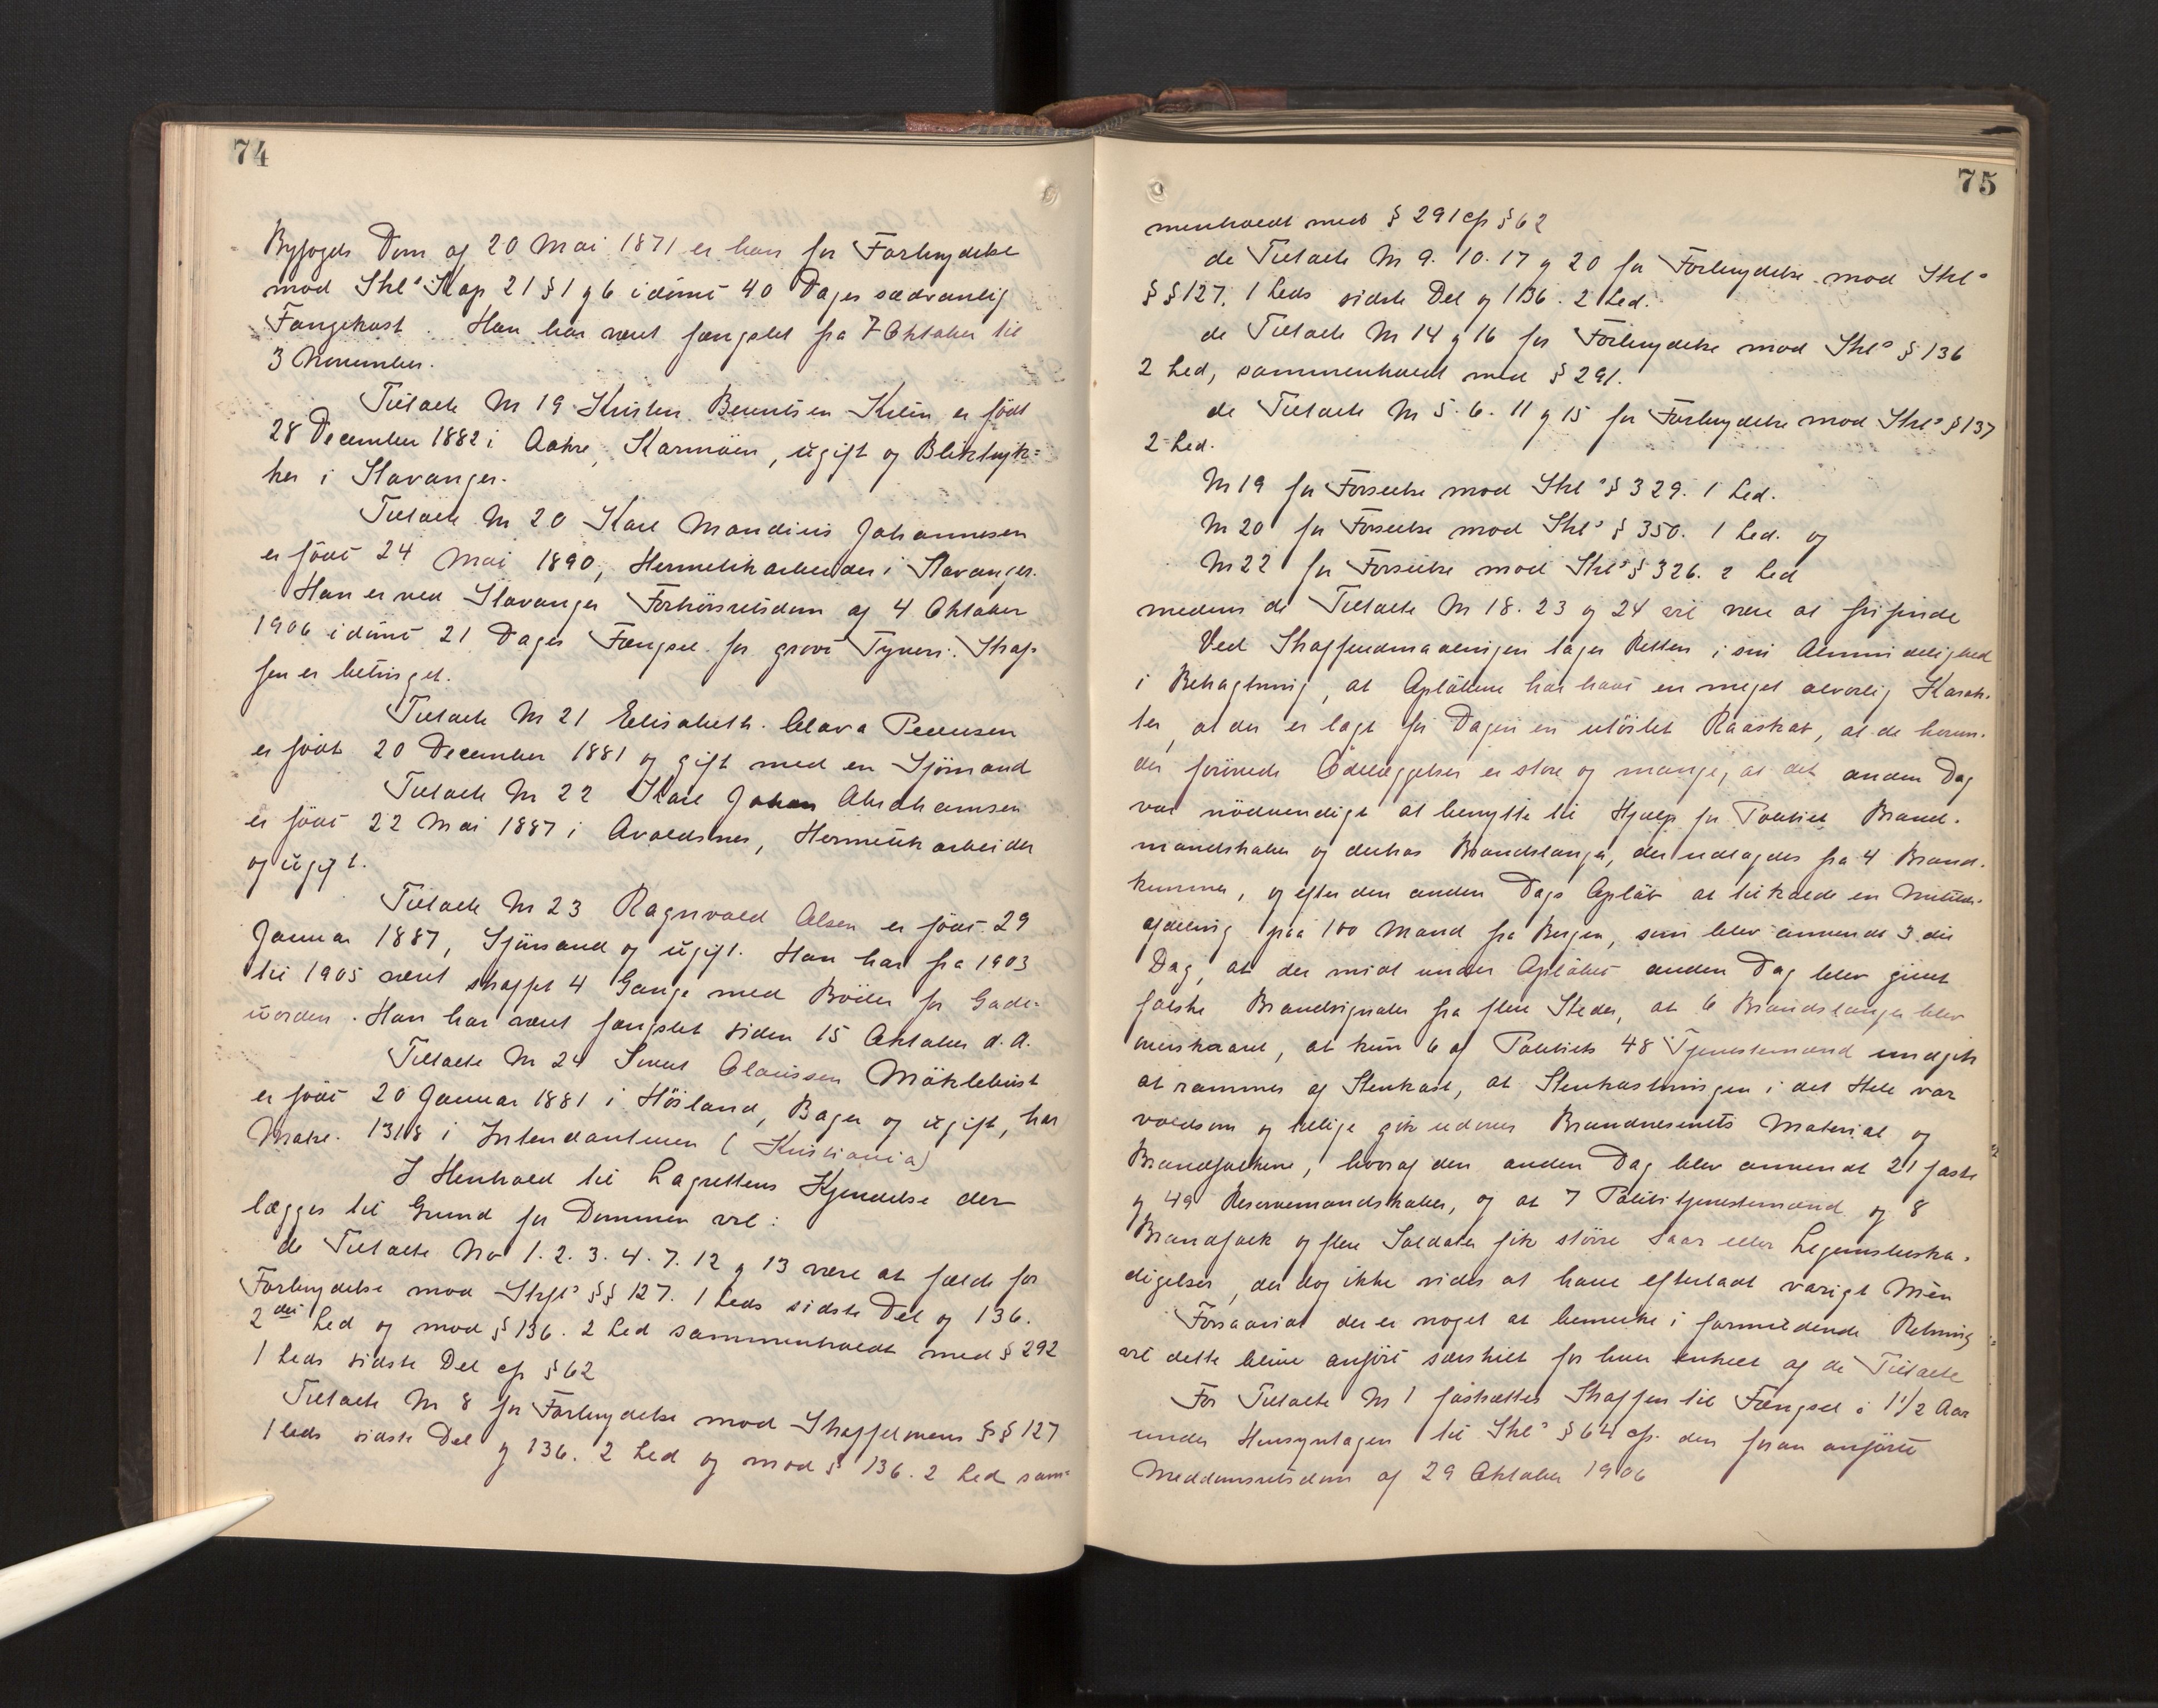 74
Byfogds Dom af 20 Mai 1871 er han for Forbrydelse
mod Strl's Kap 21 § 1 og 6 idømt 40 Dages sædvanlig
Fangekost. Han har været fængslet fra 7 Oktober til
3 November.
Tiltalte Nr 19 Kristen Berentsen er født
28 December 1882 i Aakre, Karmøen, ugift og Bliktryk=
ker i Stavanger.
Tiltalte Nr 20 Karl Mandius Johannesen
er født 24 Mai 1890, Hermetikarbeider i Stavanger.
Han er ved Stavanger Forhørsretsdom af 4 Oktober
1906 idømt 21 Dages Fængsel for grovt Tyveri. Straf
fen er betinget.
Tiltalte Nr 21 Elisabeth Clara Pedersen
er født 20 December 1881 og gift med en Sjømand
Tiltalte Nr 22 Karl Johan Abrahamsen
er født 22 Mai 1887 i Avaldsnes, Hermetikarbeider
og ugift.
Tiltalte Nr 23 Ragnvald Olsen er født 29
Januar 1887, Sjømand og ugift. Han har fra 1903
til 1905 været straffet 4 Gange med Bøder for Gade=
uorden. Han har været fængslet siden 15 Oktober d.A.
Tiltalte Nr 24 Claussen Møklebust
er født 20 Januar 1881 i Høiland, Bager og ugift, har
Matr. 1318 i Intendanturen (Kristiania)
I Henhold til Lagrettens Kjendelse der
lægges til Grund for Dommen vil:
de Tiltalte No 1. 2. 3. 4. 7. 12 og 13 være at fælde for
Forbrydelse mod Strfl's §§ 127. 1 Leds sidste Del og 136.
2det Led og mod § 136. 2 Led sammenholdt med § 292
1 Leds sidste Del cfr § 62
Tiltalte Nr 8 for Forbrydelse mod Straffelovens §§ 127
1 Leds sidste Del og 136. 2 Led og mod § 136. 2 Led sam=
75
menholdt med § 291 cfr § 62
de Tiltalte Nr 9. 10. 17 og 20 for Forbrydelse mod Strl's
§§ 127. 1 Leds sidste Del og 136. 2 Led.
de Tiltalte Nr 14 og 16 for Forbrydelse mod Strl's § 136
2 Led, sammenholdt med § 291.
de Tiltalte Nr 5. 6. 11 og 15 for Forbrydelse mod Strl's § 137
2 Led.
Nr 19 for Forseelse mod Strl's § 329. 1 Led.
Nr 20 for Forseelse mod Strl's § 350. 1 Led. og
Nr 22 for Forseelse mod Strl's § 326. 2 Led
medens de Tiltalte Nr 18. 23 og 24 vil være at frifinde
Ved Straffeudmaalingen tager Retten i sin Almindelighed
i Betragtning, at Opløbene har havt en meget alvorlig Karak-
ter, at der er lagt for Dagen en utøilet Raaskab, at de herun-
der forøvede Ødelæggelser er store og mange, at det anden Dag
var nødvendigt at benytte til Hjælp for Politiet Brand-
mandskaber og derhos Brandslanger, der udlagdes fra 4 Brand-
kummer, og efter den anden Dags Opløb at tilkalde en Militær-
afdeling paa 100 Mand fra Bergen, som blev anvendt 3die
Dag, at der midt under Opløbet anden Dag blev givet
falske Brandsignaler fra flere Steder, at 6 Brandslanger blev
overskaaret, at kun 6 af Politiets 48 Tjenestemænd undgik
at rammes af Stenkast, at Stenkastningen i det Hele var
voldsom og tillige gik udover Brandvesenets Material og
Brandfolkene, hvoraf den anden Dag blev anvendt 21 faste
og 49 Reservemandskaber, og at 7 Polititjenestemænd og 8
Brandfolk og flere Soldater fik større Saar eller Legemsbeska-
digelser, der dog ikke vides at have efterladt varigt Mén
Forsaavidt der er noget at bemerke i formildende Retning
vil dette blive anført særskilt for hver enkelt af de Tiltalte
For Tiltalte Nr 1 fastsættes Straffen til Fængsel i 1 1/2 Aar
under Hensyntagen til Strl's § 64 cfr. den foran anførte
Meddomsretsdom af 29 Oktober 1906